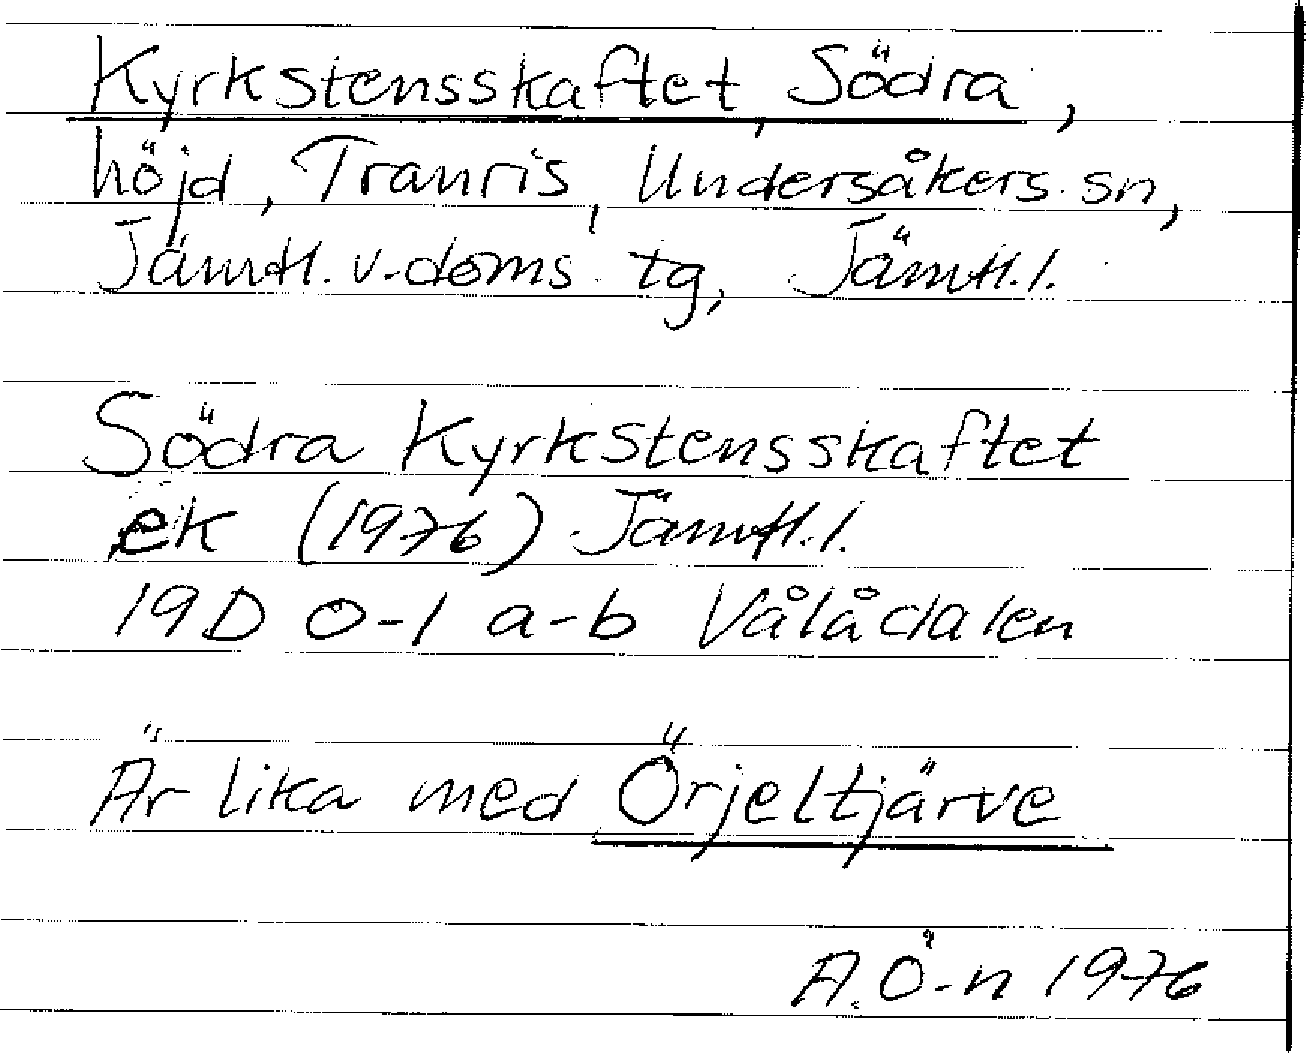 Kyrkstensskaftet, Södra,
höjd, Tranris, Undersåkers sn,
Jämtl. v. doms. tg, Jämtl. l.
Södra Kyrkstensskaftet
ek (1976) Jämtl. l.
19D 0-1 a-b Vålådalen
Är lika med Örjeltjärve
A. Ö-n 1976